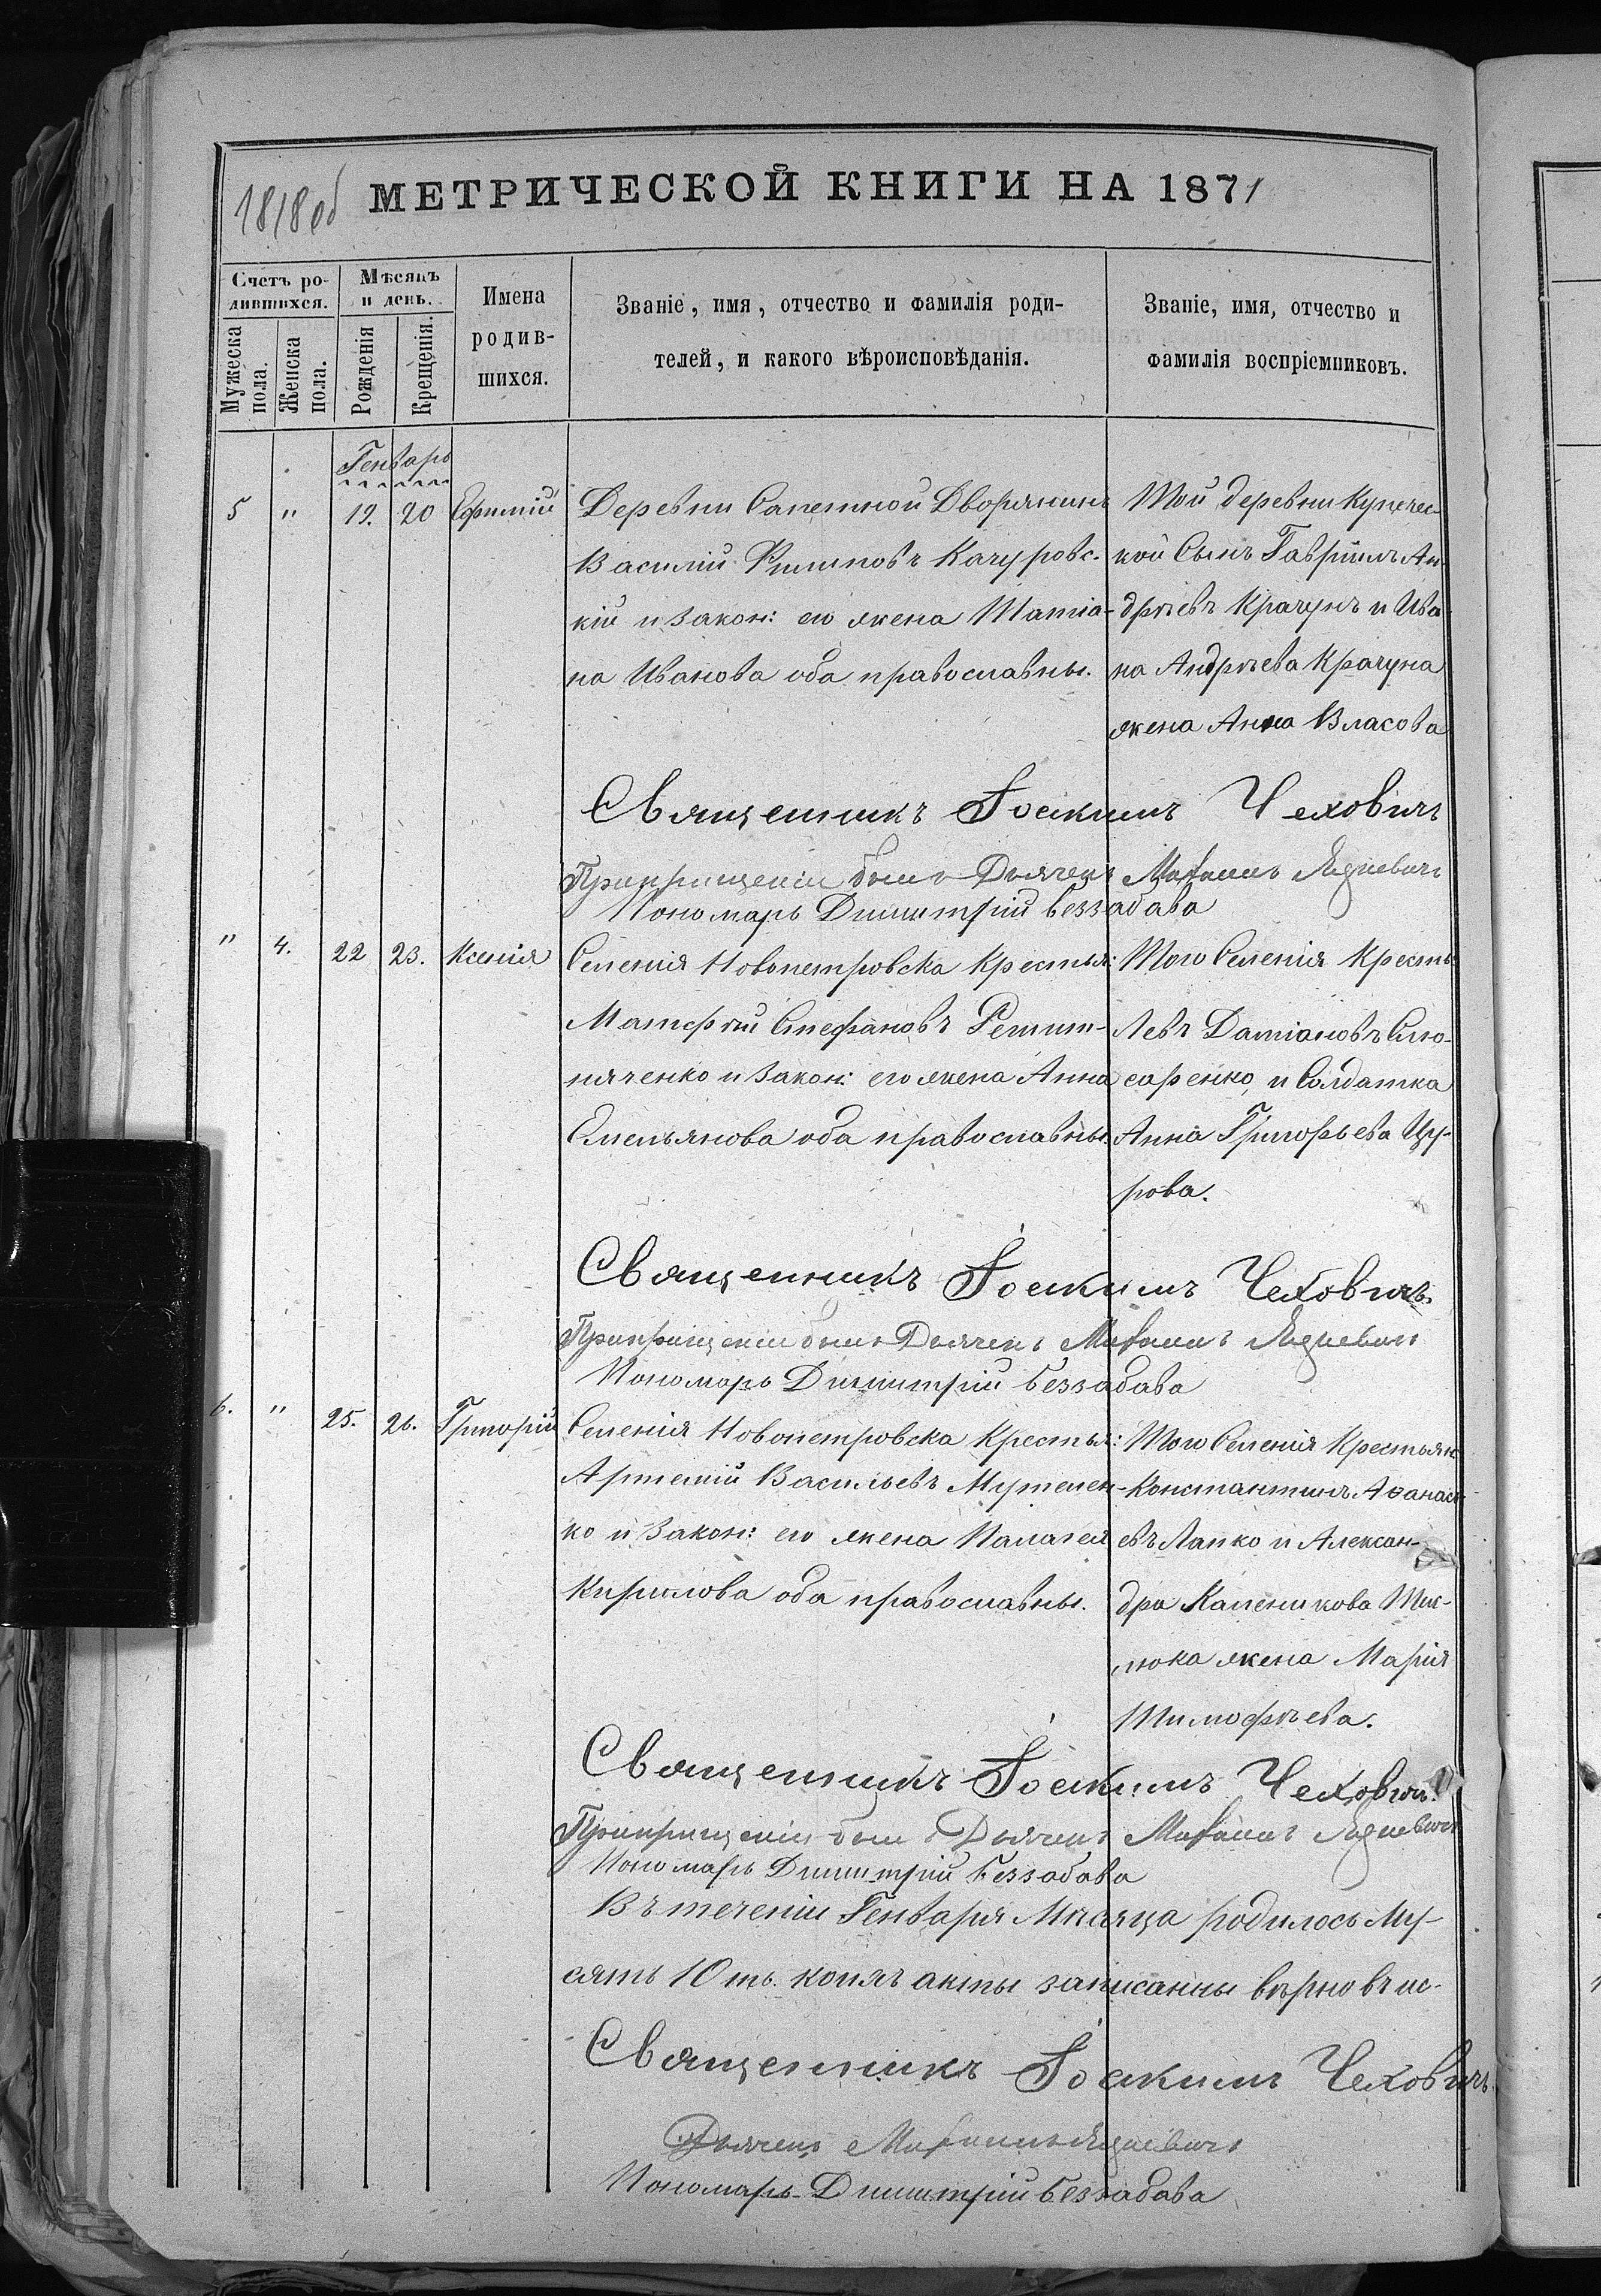 1818об МЕТРИЧЕСКОЙ КНИГИ НА 1871
Счетъ ро-
дившихся.
Мужеска
пола.
Женска
пола.
Мѣсяцъ
и день.
Рожденія
Крещенія.
Имена
родив-
шихся.
Званіе, имя, отчество и фамилія роди-
телей, и какого вѣроисповѣданія.
Званіе, имя, отчество и
фамилія воспріемниковъ.
Генварь
5 " 19. 20 Ефимій
Деревни Сапетной Дворянинъ
Василій Филиповъ Качуровс-
кій и закон: его жена Татіа-
на Иванова оба православны.
Той деревни Купечес-
кой Сынъ Гавріилъ Ан-
дрѣевъ Крачунъ и Ива
на Андрѣева Крачуна
жена Анна Власова
Священникъ Іоакимъ Чехович
При крещеніи былъ Дьячекъ Михаилъ
Пономарь Димитрій Беззабава
" 4. 22 23. Ксенія
Селенія Новопетровска Крестья:
Матфѣй Стефановъ Решит-
няченко и закон: его жена Анна
Емельянова оба православны.
Того Селенія Кресть
Левъ Даміановъ Слю-
саренко, и Солдатка
Анна Григорьева Цу-
рова.
Священникъ Іоакимъ Чеховичъ.
При крещеніи былъ Дьячекъ Михаилъ
Пономарь Димитрій Беззабава
6. " 25. 26. Григорій
Селенія Новопетровска Крестья:
Артемій Васильевъ Муртелен-
ко и закон: его жена Палагея
Кирилова оба православны.
Того Селенія Крестьян
Константинъ Аѳанась
евъ Лапко и Алексан-
дра Каленикова
люка жена Марія
Тимофѣева.
Священникъ Іоакимъ Чеховичъ.
При крещеніи былъ Дьячекъ Михаилъ
Пономарь Димитрій Беззабава
Въ теченіи Генваря Мѣсяца родилось Му-
сятъ 10ть. коихъ акты записанны вѣрно въ ис-
Священникъ Іоакимъ Чеховичъ
Дьячекъ Михаилъ
Пономарь Димитрій Беззабава